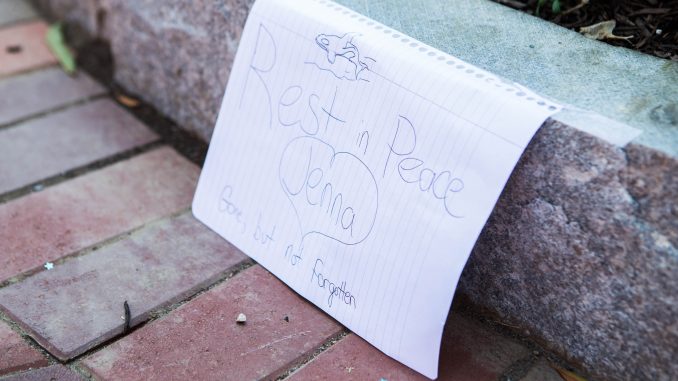 Rest in Peace
Jenna
Gone, but not forgotten